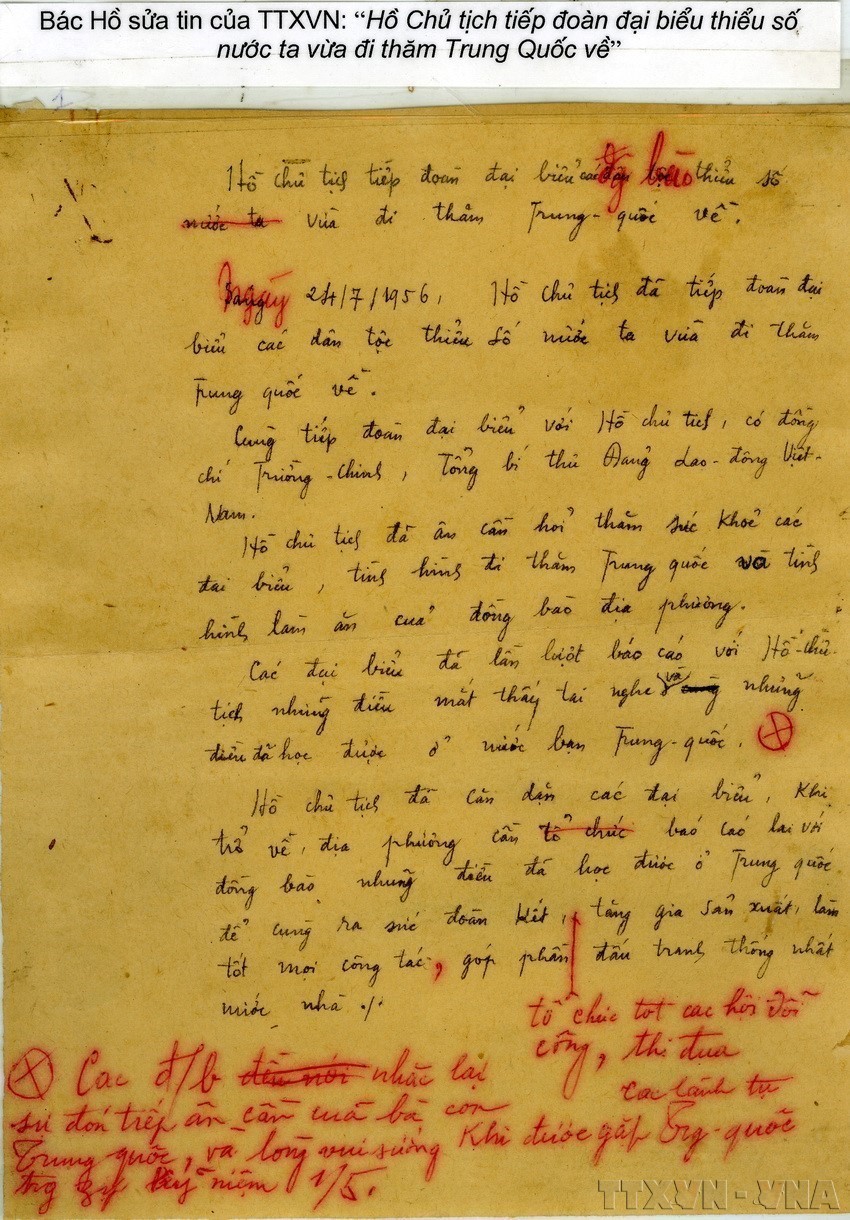 Bác Hồ sửa tin của TTXVN: “Hồ Chủ tịch tiếp đoàn đại biểu thiểu số
nước ta vừa đi thăm Trung Quốc về”
Hồ chủ tịch tiếp đoàn đại biểu đg bào thiểu số
nước ta vừa đi thăm Trung-quốc về.
Ngày 24/7/1956, Hồ chủ tịch đã tiếp đoàn đại
biểu các dân tộc thiểu số nước ta vừa đi thăm
Trung quốc về.
Cùng tiếp đoàn đại biểu với Hồ chủ tịch, có đồng
chí Trường-Chinh, Tổng bí thư Đảng Lao-động Việt-
Nam.
Hồ chủ tịch đã ân cần hỏi thăm sức khoẻ các
đại biểu, tình hình đi thăm Trung quốc và tình
hình làm ăn của đồng bào địa phương.
Các đại biểu đã lần lượt báo cáo với Hồ-chủ-
tịch những điều mắt thấy tai nghe và những
điều đã học được ở nước bạn Trung-quốc.
Hồ chủ tịch đã căn dặn các đại biểu, khi
trở về, địa phương cần tổ chức báo cáo lại với
đồng bào những điều đã học được ở Trung quốc
để cùng ra sức đoàn kết, tăng gia sản xuất, làm
tốt mọi công tác, góp phần đấu tranh thống nhất
nước nhà ./.
tổ chức tot cac hội đổi
công, thi đua
Cac đ/b đều nói nhắc lại
sự đón tiếp ân cần của bà con
các lãnh tụ
Trung quốc, và lòng vui sướng khi được gặp Trg-quốc
trg kỷ niệm 1/5.
TTXVN-VNA